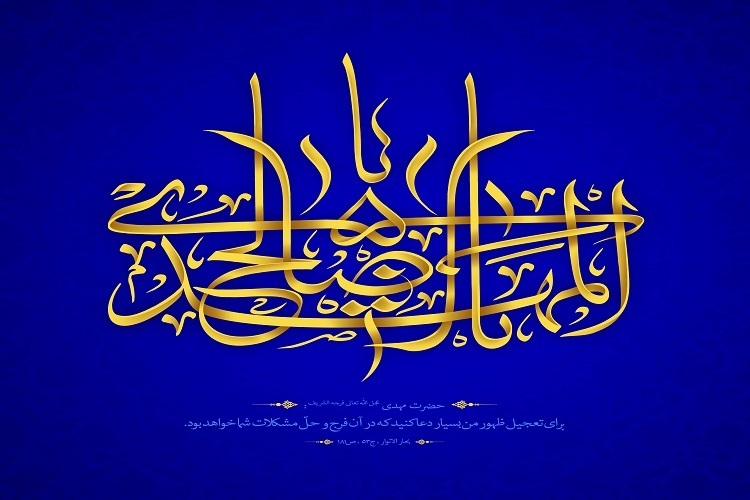 یا اباصالح المهدی
حضرت مهدی عجل الله تعالی فرجه الشریف :
برای تعجیل ظهور من بسیار دعا کنید که در آن فرج و حلّ مشکلات شما خواهد بود.
بحار الانوار ، ج۵۳ ، ص۱۸۱